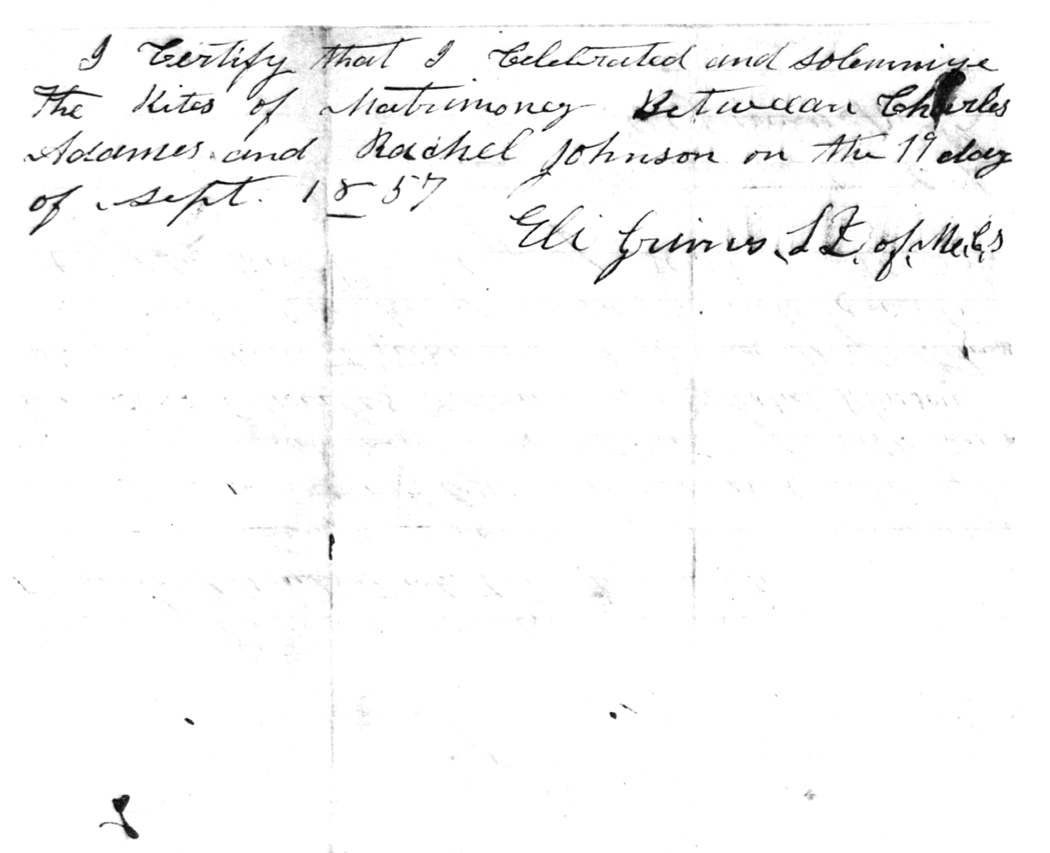 I Certify that I Celebrated and solemnize
The Rites of Matrimoney Betweean Charles
Adames and Rachel Johnson on the 19 day
of sept. 1857
Eli of